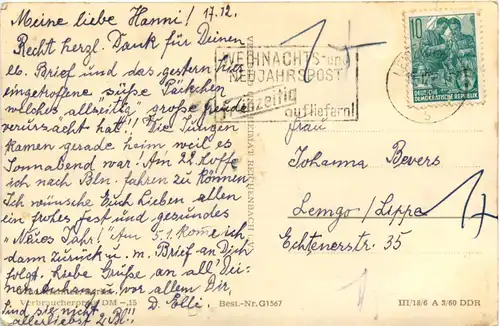 Meine liebe Hanni! 17.12.
Recht herzl. Dank für Deinen
lb. Brief und das gestern hier
eingetroffene süße Päckchen
welches allseitig große Freude
verursacht hat!! Die Jungen
kamen gerade heim weil es
Sonnabend war! Am 22. hoffe
ich nach Bln. fahren zu können.
Ich wünsche Euch Lieben allen
ein frohes Fest und gesundes
"Neues Jahr!" Am 5.1. kome ich
dann zurück u. m. Brief an Dich
folgt. Liebe Grüße an all' Dei-
ne vor allem Dir,
und sie nicht D. Elli.
allerliebst 2 Bl!!
WEIHNACHTS- und
NEUJAHRSPOST
Frühzeitig
aufliefern!
10
DEUTSCHE
DEMOKRATISCHE REPUBLIK
Frau
Johanna Bevers
Lemgo/Lippe
Echternerstr. 35
Verbraucherpreis DM -,15
Best.-Nr. G1567
III/18/6 A 3/60 DDR